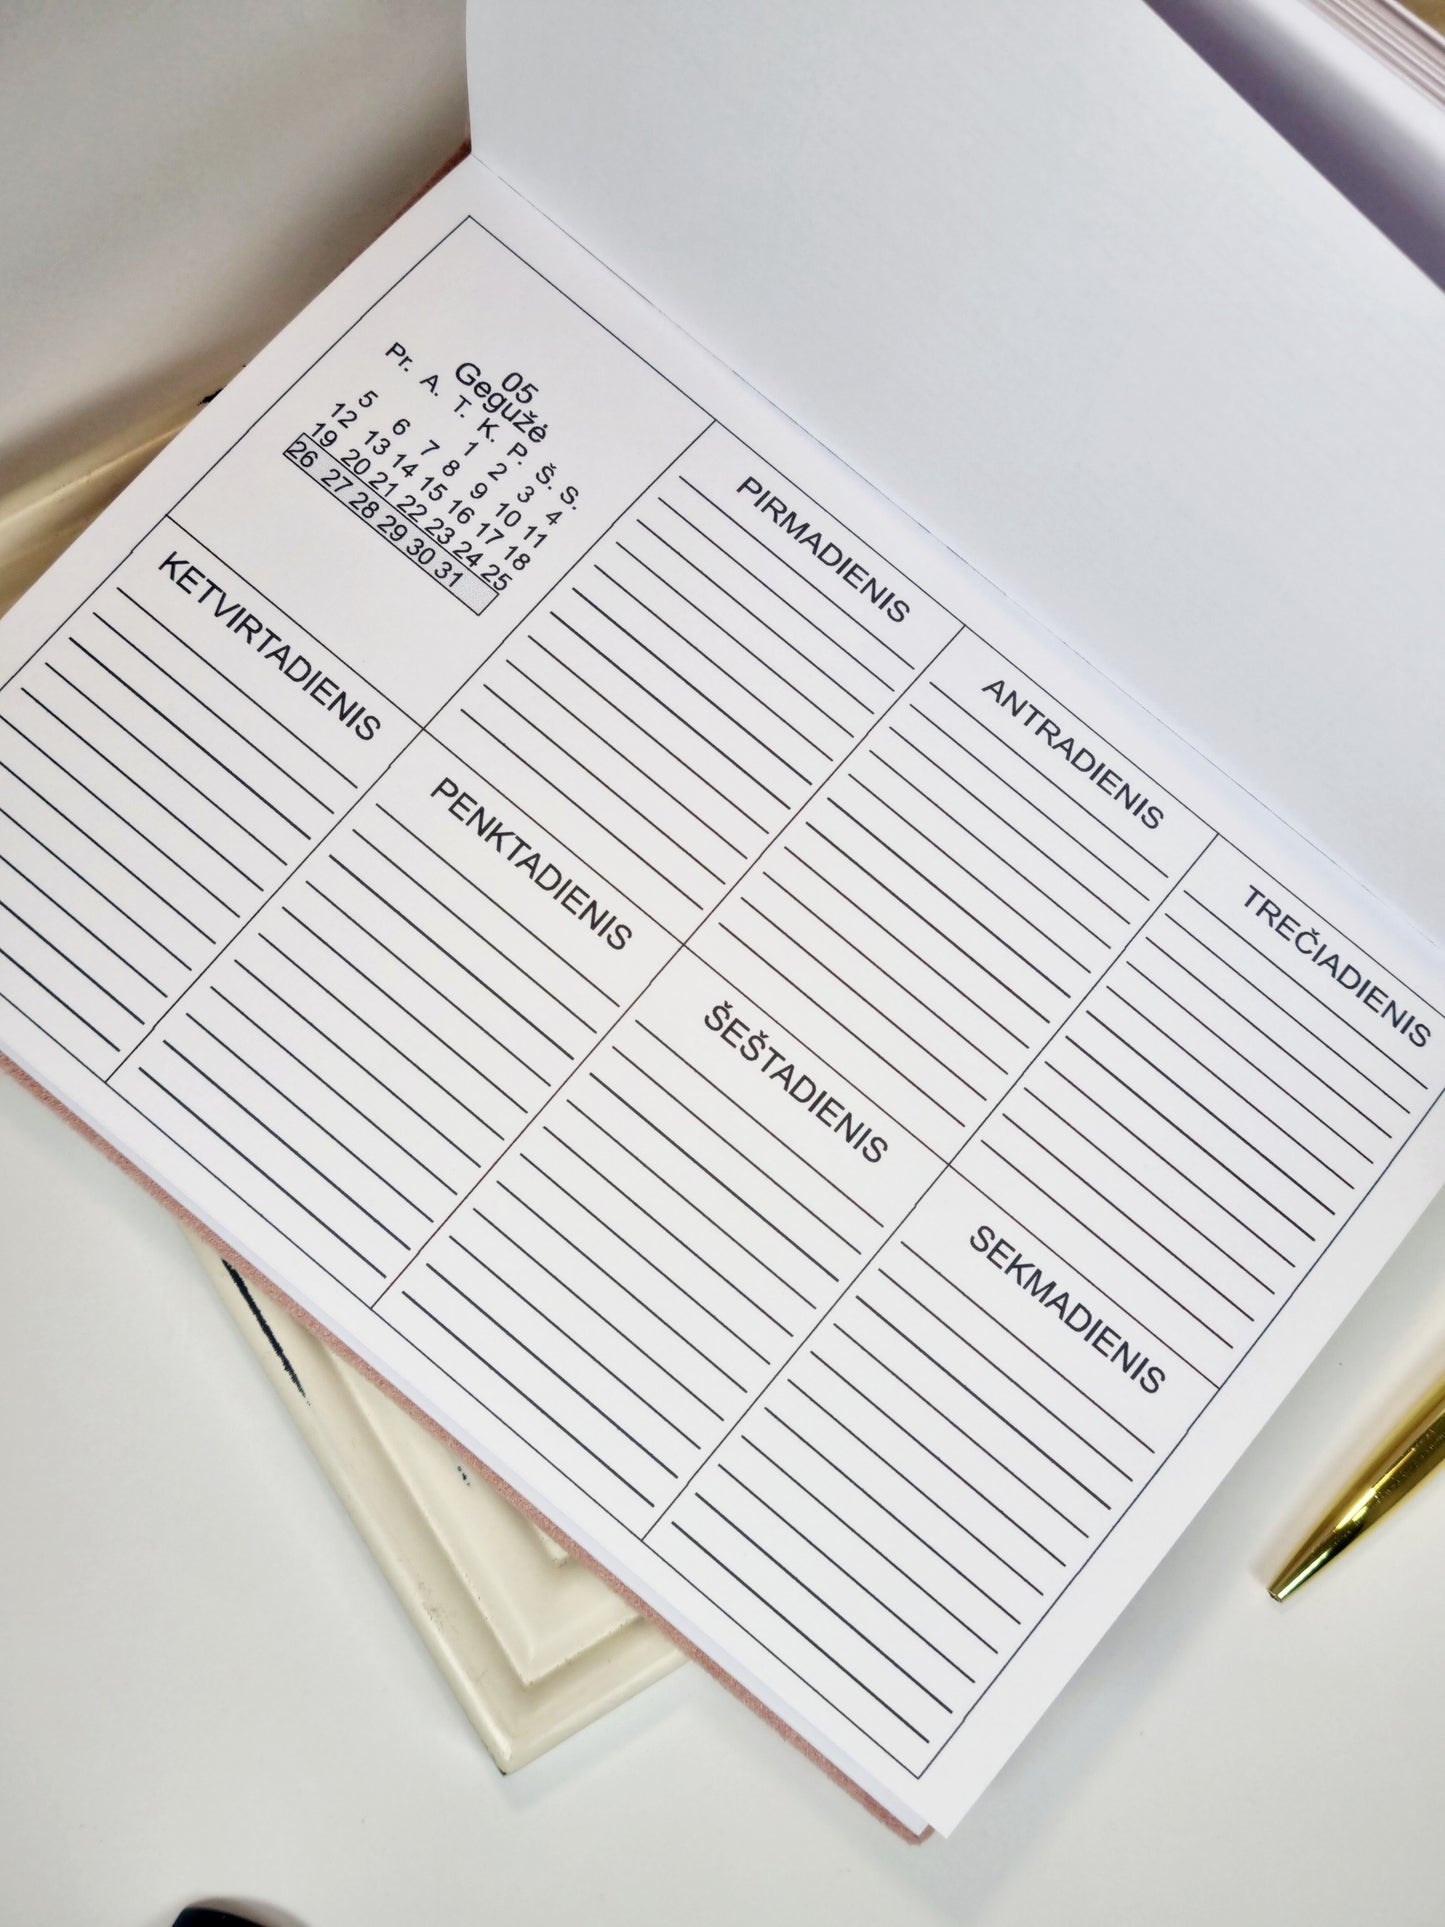 05
Gegužė
Pr. A. T. K. P. Š. S.
1 2 3 4
5 6 7 8 9 10 11
12 13 14 15 16 17 18
19 20 21 22 23 24 25
26 27 28 29 30 31
PIRMADIENIS
ANTRADIENIS
TREČIADIENIS
KETVIRTADIENIS
PENKTADIENIS
ŠEŠTADIENIS
SEKMADIENIS